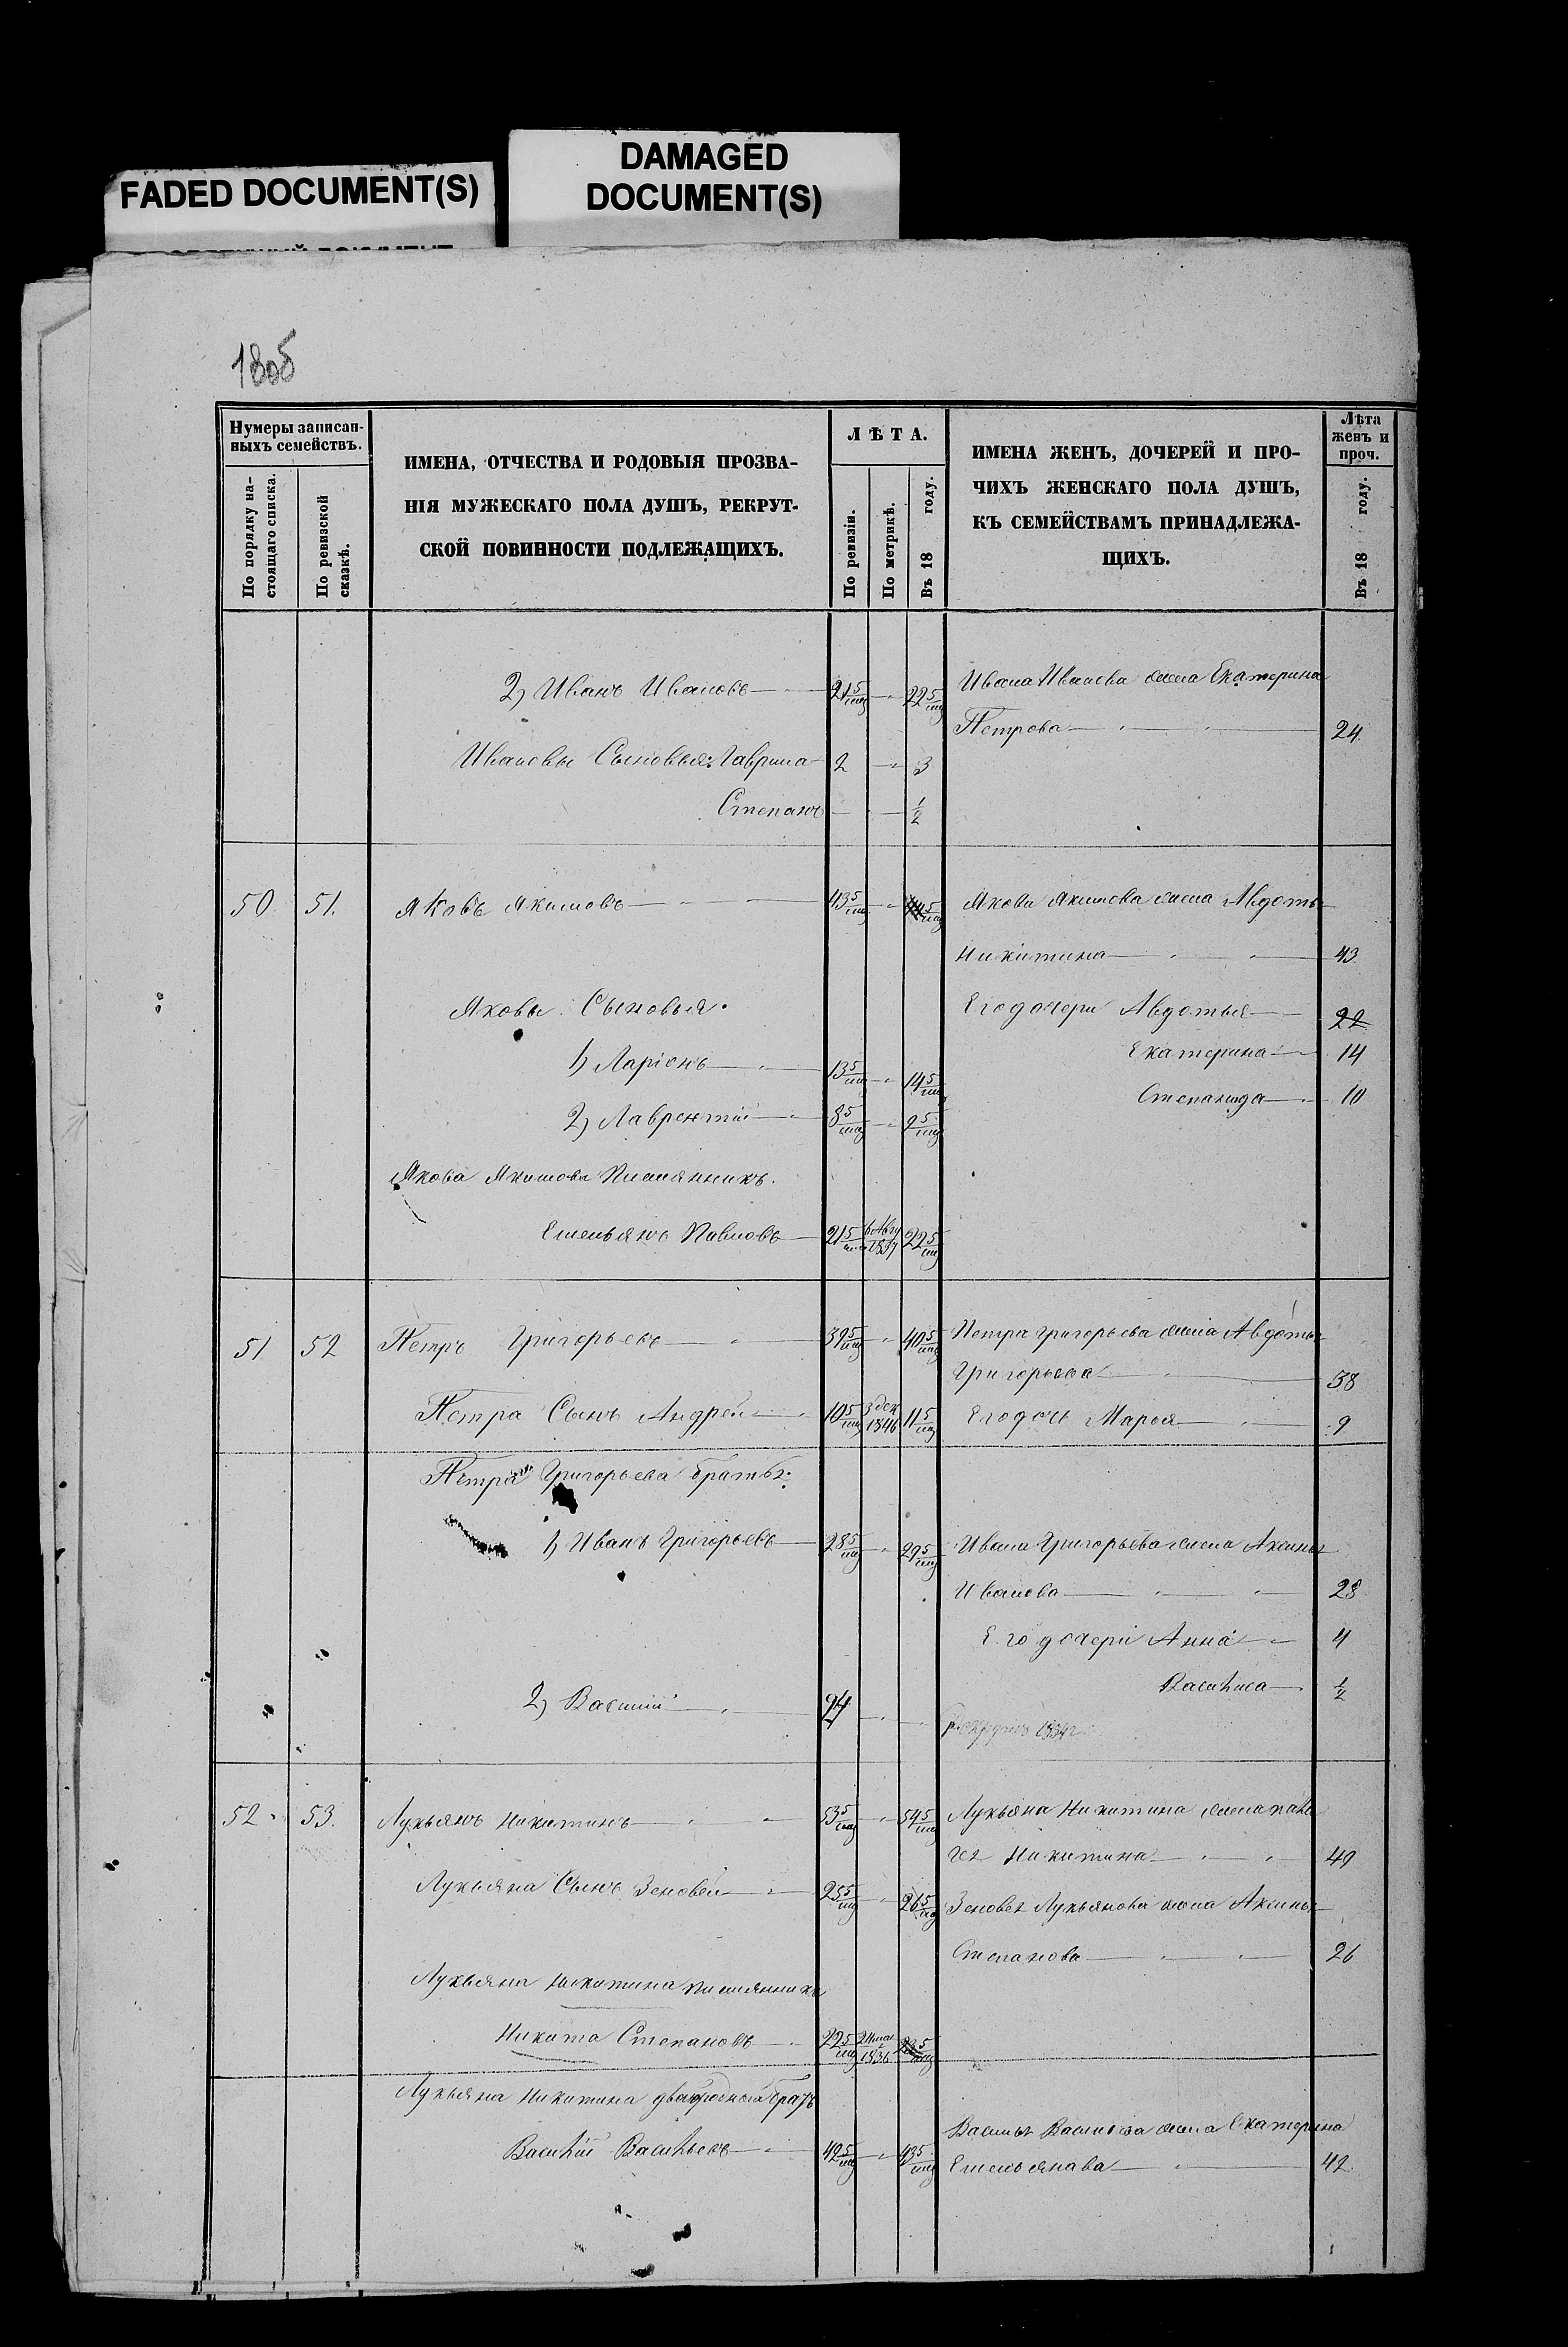 FADED DOCUMENT(S)
DAMAGED
DOCUMENT(S)
Нумеры записан-
ныхъ семействъ.
По порядку на-
стоящаго списка.
По ревизской
сказкѣ.
ИМЕНА, ОТЧЕСТВА И РОДОВЫЯ ПРОЗВА-
НІЯ МУЖЕСКАГО ПОЛА ДУШЪ, РЕКРУТ-
СКОЙ ПОВИННОСТИ ПОДЛЕЖАЩИХЪ.
ЛѢТА.
По ревизіи.
По метрикѣ.
Въ 18 году.
ИМЕНА ЖЕНЪ, ДОЧЕРЕЙ И ПРО-
ЧИХЪ ЖЕНСКАГО ПОЛА ДУШЪ,
КЪ СЕМЕЙСТВАМЪ ПРИНАДЛЕЖА-
ЩИХЪ.
Лѣта
женъ и
проч.
Въ 18 году.
2) Иванъ Ивановъ 21 5/мц 22 5/мц Ивана Иванова жена Екатерина
Петрова 24
Ивановы Сыновья: Гаврила 2 3
Степанъ 1/2
50 51. Яковъ Якимовъ 43 5/мц 44 5/мц Якова Якимова жена Авдотья
Никитина 43
Яковы Сыновья. Его дочери Авдотья 22
Екатерина 14
1) Ларіонъ 13 5/мц 14 5/мц
Степанида 10
2) Лаврентій 8 5/мц 9 5/мц
Якова Якимова Племянникъ.
Емельянъ Павловъ 21 5/мц 6 Авгу 1837 22 5/мц
51 52 Петръ Григорьевъ 39 5/мц 40 5/мц Петра Григорьева жена Авдотья
Григорьева 38
Петра Сынъ Андрей 10 5/мц 3 дек 1846 11 5/мц Его дочь Марья 9
Петра Григорьева братья:
1) Иванъ Григорьевъ 28 5/мц 29 5/мц Ивана Григорьева жена Аксинья
Иванова 28
Его дочери Анна 4
Василиса 1/2
2) Василій 24
52 53. Лукьянъ Никитинъ 53 5/мц 54 5/мц Лукьяна Никитина жена
Никитина 49
Лукьяна Сынъ Зеновей 25 5/мц 26 5/мц Зеновея Лукьянова жена Аксинья
Степанова 26
Лукьяна Никитина племянникъ
Никита Степановъ 22 5/мц 1836
Лукьяна Никитина двоюродный братъ
Василій Васильевъ 42 5/мц 43 5/мц Василья Васильева жена Екатерина
Емельянава 42